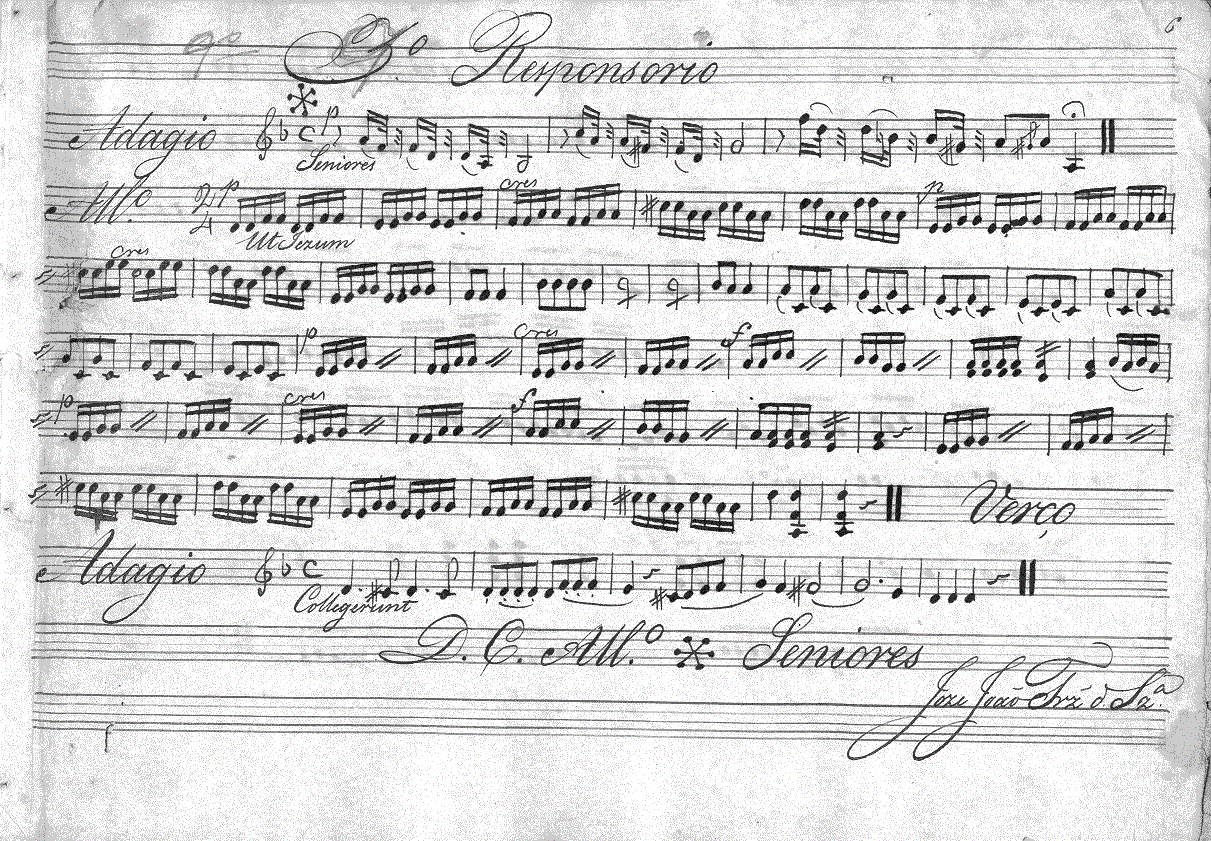 6
Responsorio
Adagio
p
Seniores
All.º
2
4
p
cres
p
cres
p
cres
f
p
cres
f
Verço
Adagio
Collegerunt
D. C. All.º Seniores
Joze João